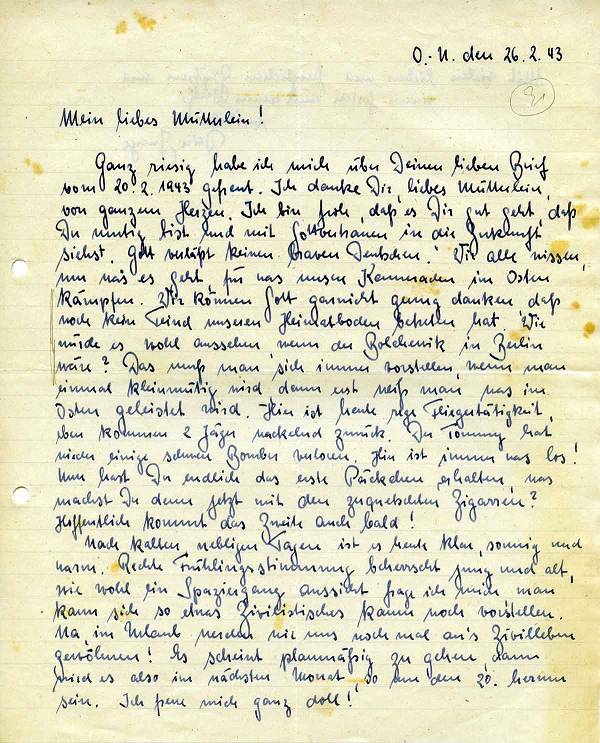 O.-U. den 26.2.43
91
Mein liebes Mütterlein!
Ganz riesig habe ich mich über Deinen lieben Brief
vom 20.2.1943 gefreut. Ich danke Dir, liebes Mütterlein,
von ganzem Herzen. Ich bin froh, daß es Dir gut geht, daß
Du mutig bist und mit Gottvertrauen in die Zukunft
siehst. „Gott verläßt keinen braven Deutschen." Wir alle wissen,
um was es geht, für was unsere Kameraden im Osten
kämpfen. Wir können Gott garnicht genug danken daß
noch kein Feind unseren Heimatboden betreten hat. Wie
würde es wohl aussehen wenn der Bolchewik in Berlin
wäre? Das muß man sich immer vorstellen, wenn man
einmal kleinmütig wird, dann erst weiß man was im
Osten geleistet wird. Hier ist heute rege Fliegertätigkeit,
eben kommen 2 Jäger wackelnd zurück. Der Tommy hat
wieder einige schwere Bomber verloren. Hier ist immer was los!
Nun hast Du endlich das erste Päckchen erhalten, was
machst Du denn jetzt mit den zerquetschten Zigarren?
Hoffentlich kommt das Zweite auch bald!
Nach kalten nebligen Tagen ist es heute klar, sonnig und
warm. Rechte Frühlingsstimmung beherrscht jung und alt,
wie wohl ein Spaziergang aussieht frage ich mich man
kann sich so etwas Zivilistisches kaum noch vorstellen.
Na, im Urlaub werden wir uns noch mal an's Zivilleben
gewöhnen! Es scheint planmäßig zu gehen, dann
wird es also im nächsten Monat, so um den 20. herum
sein. Ich freue mich ganz doll!